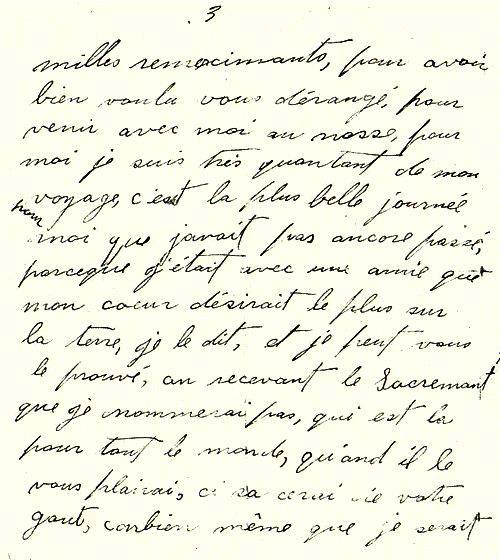 3
milles remercimants, pour avoir
bien voulu vous dérangé, pour
venir avec moi au nosse, pour
moi je suis très quontant de mon
voyage, c'est la plus belle journée
pour moi que javait pas ancore passé,
parceque j'était avec une amie que
mon coeur désirait le plus sur
la terre, je le dit, et je peut vous
le prouvé, an recevant le Sacremant
que je nommerai pas, qui est la
pour tout le monde, qu'and il le
vous plairai, ci sa cerai de votre
gout, conbien même que je serait